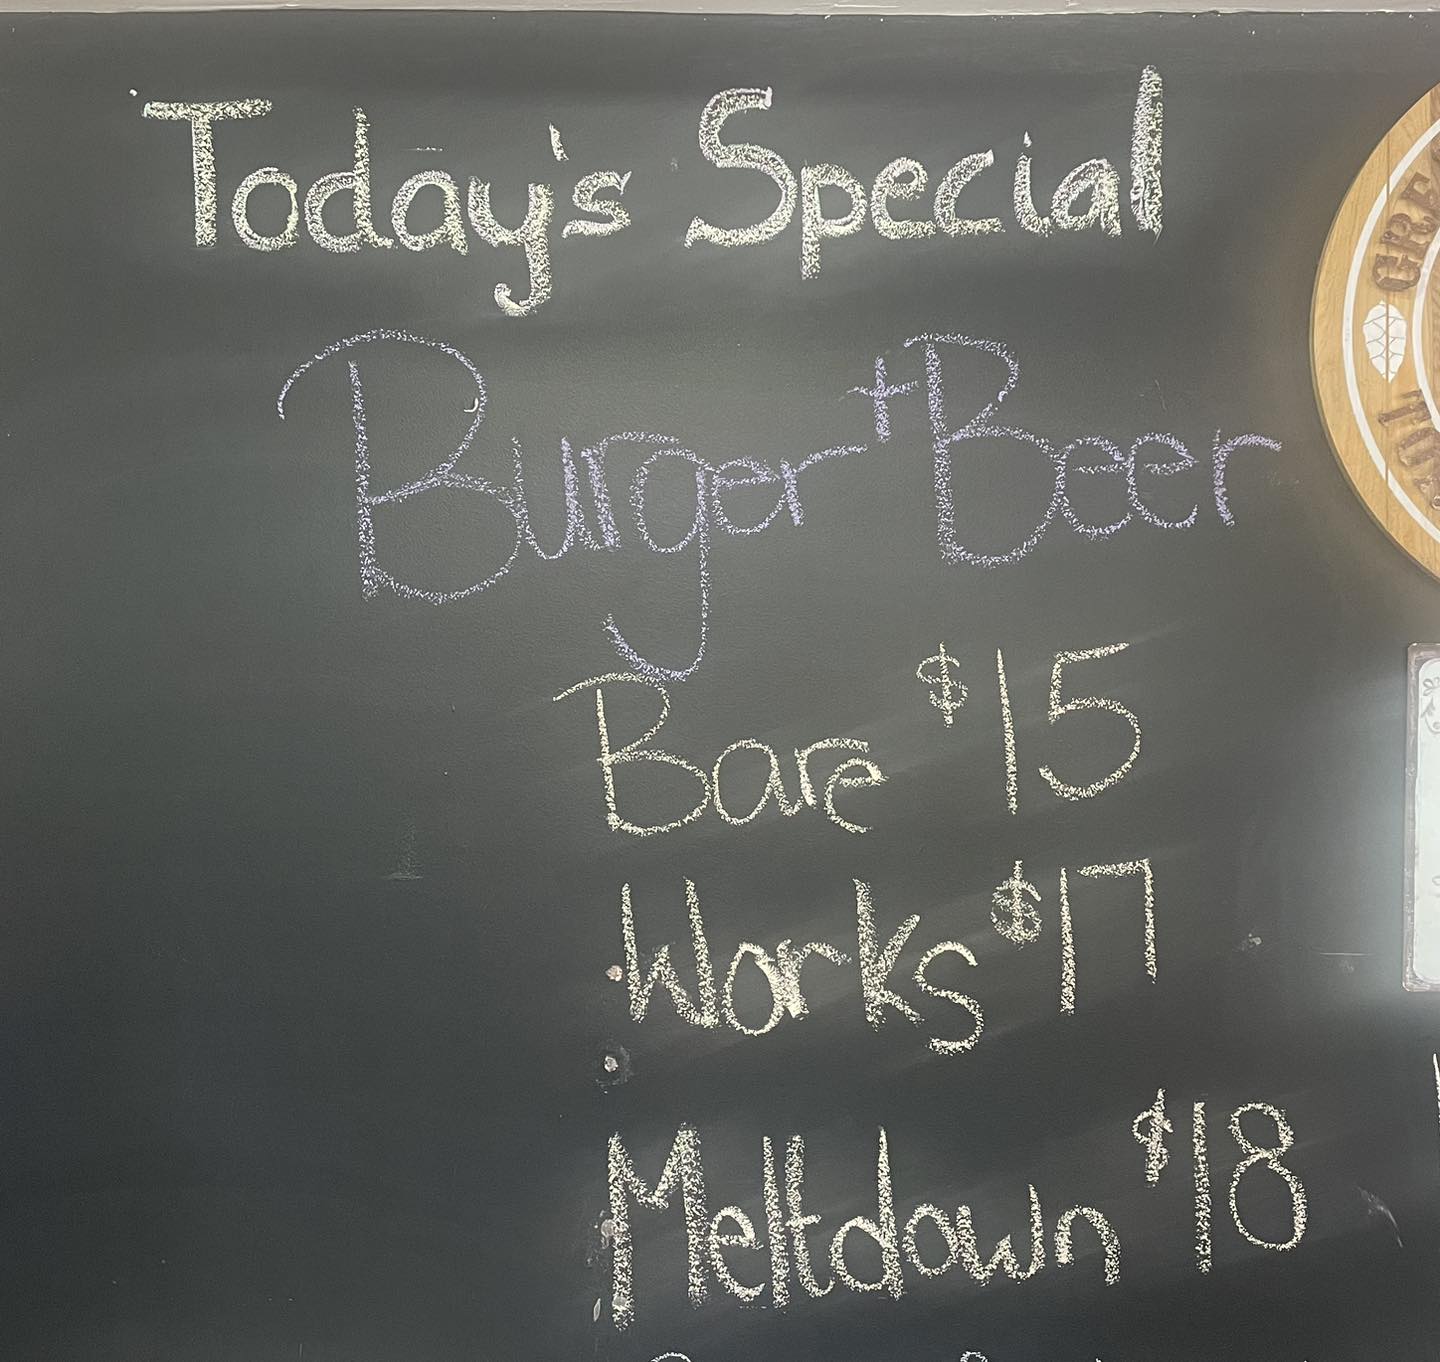 Today's Special
Burger + Beer
Bare $15
Works $17
Meltdown $18